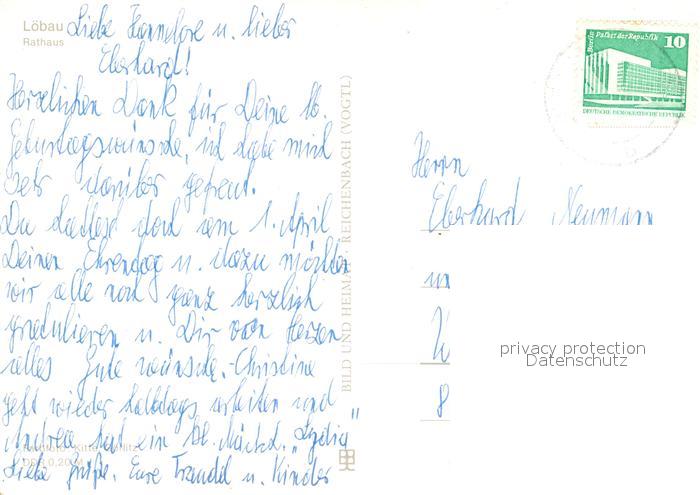 Löbau
Rathaus
Liebe Hannelore u. lieber
Eberhard!
Herzlichen Dank für Deine lb.
Geburtstagswünsche, ich habe mich
sehr darüber gefreut.
Du hattest doch am 1. April
Deinen Ehrentag u. dazu möchten
wir alle noch ganz herzlich
gratulieren u. Dir von Herzen
alles Gute wünschen. Christine
geht wieder halbtags arbeiten und
Andrea hat ein kl. Mädel. "Lydia"
Liebe Grüße. Eure Traudel u. Kinder
DDR 0,20 M
BILD UND HEIMAT REICHENBACH (VOGTL)
Berlin Palast der Republik
10
DEUTSCHE DEMOKRATISCHE REPUBLIK
Herrn
Eberhard Neumann
8
privacy protection
Datenschutz